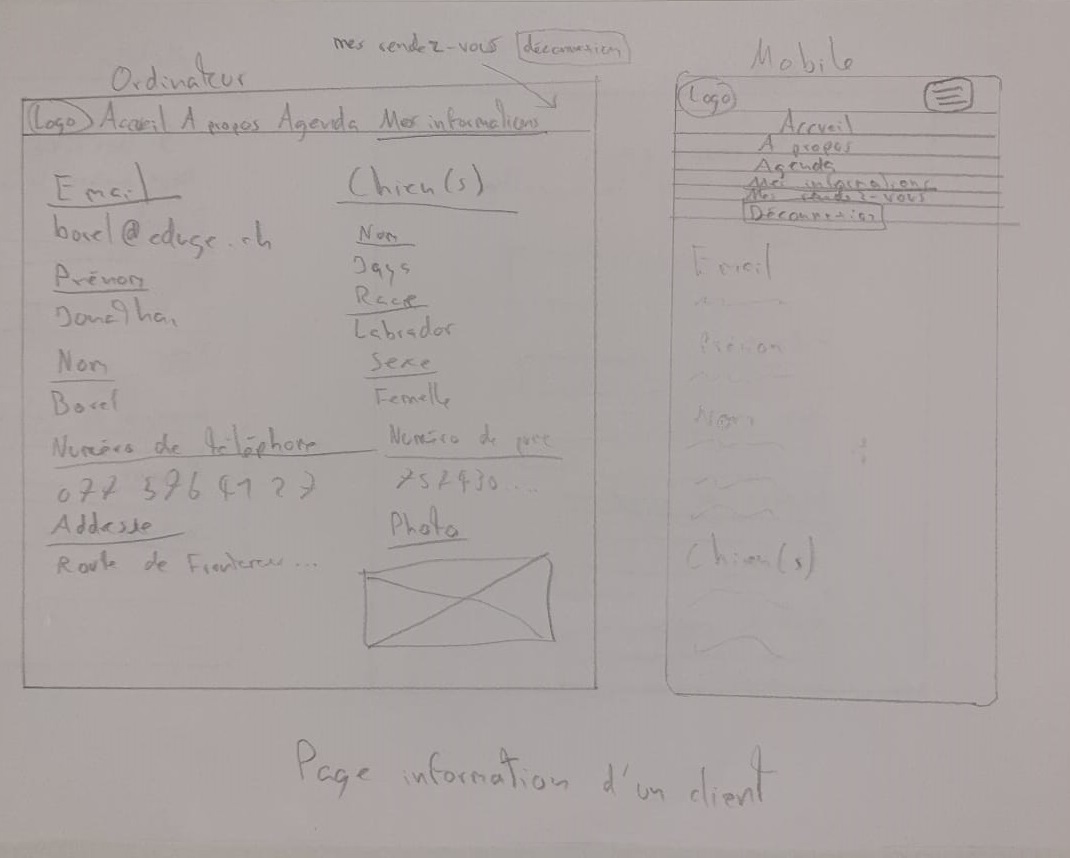 mes rendez-vous déconnexion
Ordinateur
Logo Accueil A propos Agenda Mes informations
Email
borel@eduge.ch
Prénom
Jonathan
Nom
Borel
Numéro de téléphone
077 576 41 27
Addesse
Route de
Chien(s)
Nom
Jays
Race
Labrador
Sexe
Femelle
Numéro de puce
757430...
Photo
Mobile
Logo
Accueil
A propos
Agenda
Mes informations
Mes rendez-vous
Déconnexion
Email
Prénom
Nom
Chien(s)
Page information d'un client